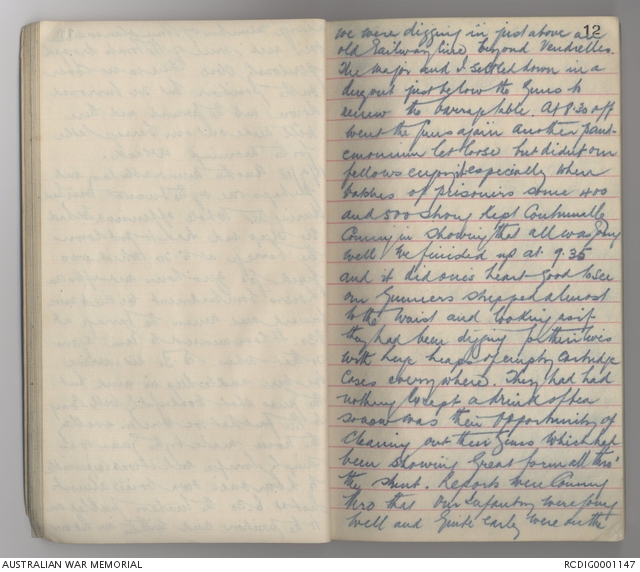 12
we were digging in just above a
old railway line beyond Vendrelles.
The Major and I settled down in a
dug out just below the Guns to
review the barrage table. At 8.30 off
went the Guns again another pand-
emonium let loose but didn't our
fellows enjoy it especially when
batches of prisoners some 400
and 500 strong kept Continually
Coming in showing that all was going
well We finished up at 9.35
and it did one's heart good to see
our Gunners stripped almost
to the waist and looking as if
they had been digging for their lives
with huge heaps of empty Cartridge
Cases everywhere. They had had
nothing except a drink of tea
so now was their opportunity of
Cleaning out their Guns which had
been showing Great form all thro'
the stunt. Reports were Coming
thro that our Infantry were going
well and quite early were on the
AUSTRALIAN WAR MEMORIAL
RCDIG0001147